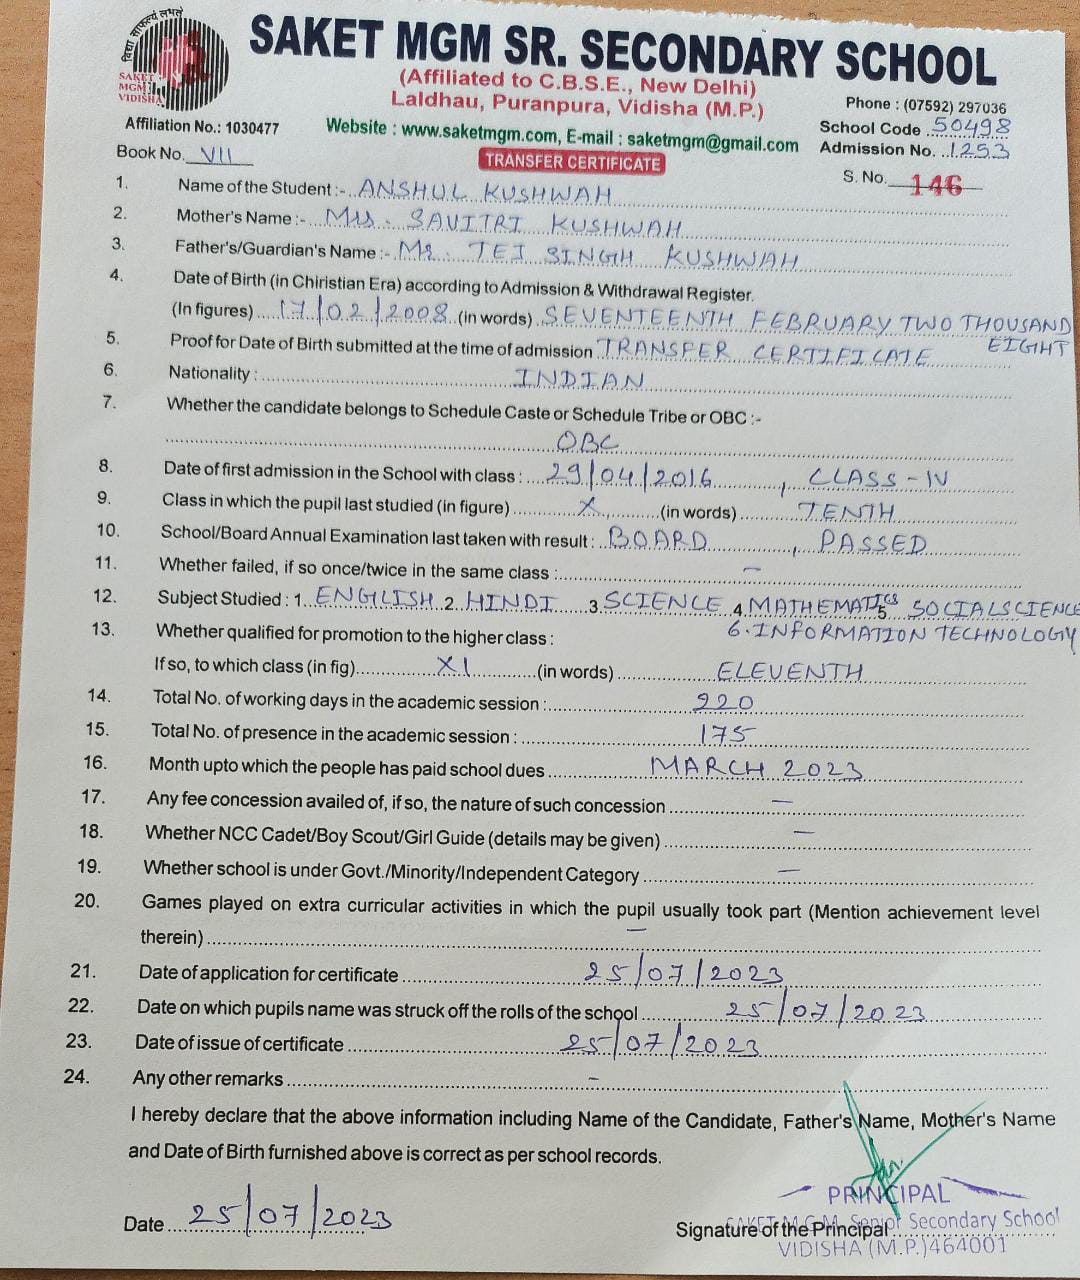 विद्या साफल्यं लभते
SAKET MGM SR. SECONDARY SCHOOL
SAKET
MGM
VIDISHA
(Affiliated to C.B.S.E., New Delhi)
Laldhau, Puranpura, Vidisha (M.P.)
Phone : (07592) 297036
Affiliation No.: 1030477
Website : www.saketmgm.com, E-mail : saketmgm@gmail.com
School Code 50498
Admission No. 1253
Book No. VII
TRANSFER CERTIFICATE
S. No. 146
1. Name of the Student :- ANSHUL KUSHWAH
2. Mother's Name :- Mrs. SAVITRI KUSHWAH
3. Father's/Guardian's Name :- Mr. TEJ SINGH KUSHWAH
4. Date of Birth (in Chiristian Era) according to Admission & Withdrawal Register.
(In figures) 17/02/2008 (in words) SEVENTEENTH FEBRUARY TWO THOUSAND
EIGHT
5. Proof for Date of Birth submitted at the time of admission TRANSFER CERTIFICATE
6. Nationality : INDIAN
7. Whether the candidate belongs to Schedule Caste or Schedule Tribe or OBC :-
OBC
8. Date of first admission in the School with class : 29/04/2016, CLASS - IV
9. Class in which the pupil last studied (in figure) X (in words) TENTH
10. School/Board Annual Examination last taken with result : BOARD, PASSED
11. Whether failed, if so once/twice in the same class : –
12. Subject Studied : 1 ENGLISH 2 HINDI 3 SCIENCE 4 MATHEMATICS 5 SOCIAL SCIENCE
6. INFORMATION TECHNOLOGY
13. Whether qualified for promotion to the higher class :
If so, to which class (in fig) XI (in words) ELEVENTH
14. Total No. of working days in the academic session : 220
15. Total No. of presence in the academic session : 175
16. Month upto which the people has paid school dues MARCH 2023
17. Any fee concession availed of, if so, the nature of such concession –
18. Whether NCC Cadet/Boy Scout/Girl Guide (details may be given) –
19. Whether school is under Govt./Minority/Independent Category –
20. Games played on extra curricular activities in which the pupil usually took part (Mention achievement level
therein) –
21. Date of application for certificate 25/07/2023
22. Date on which pupils name was struck off the rolls of the school 25/07/2023
23. Date of issue of certificate 25/07/2023
24. Any other remarks –
I hereby declare that the above information including Name of the Candidate, Father's Name, Mother's Name
and Date of Birth furnished above is correct as per school records.
PRINCIPAL
Date 25/07/2023
Signature of the Principal
SAKET M.G.M. Senior Secondary School
VIDISHA (M.P.) 464001